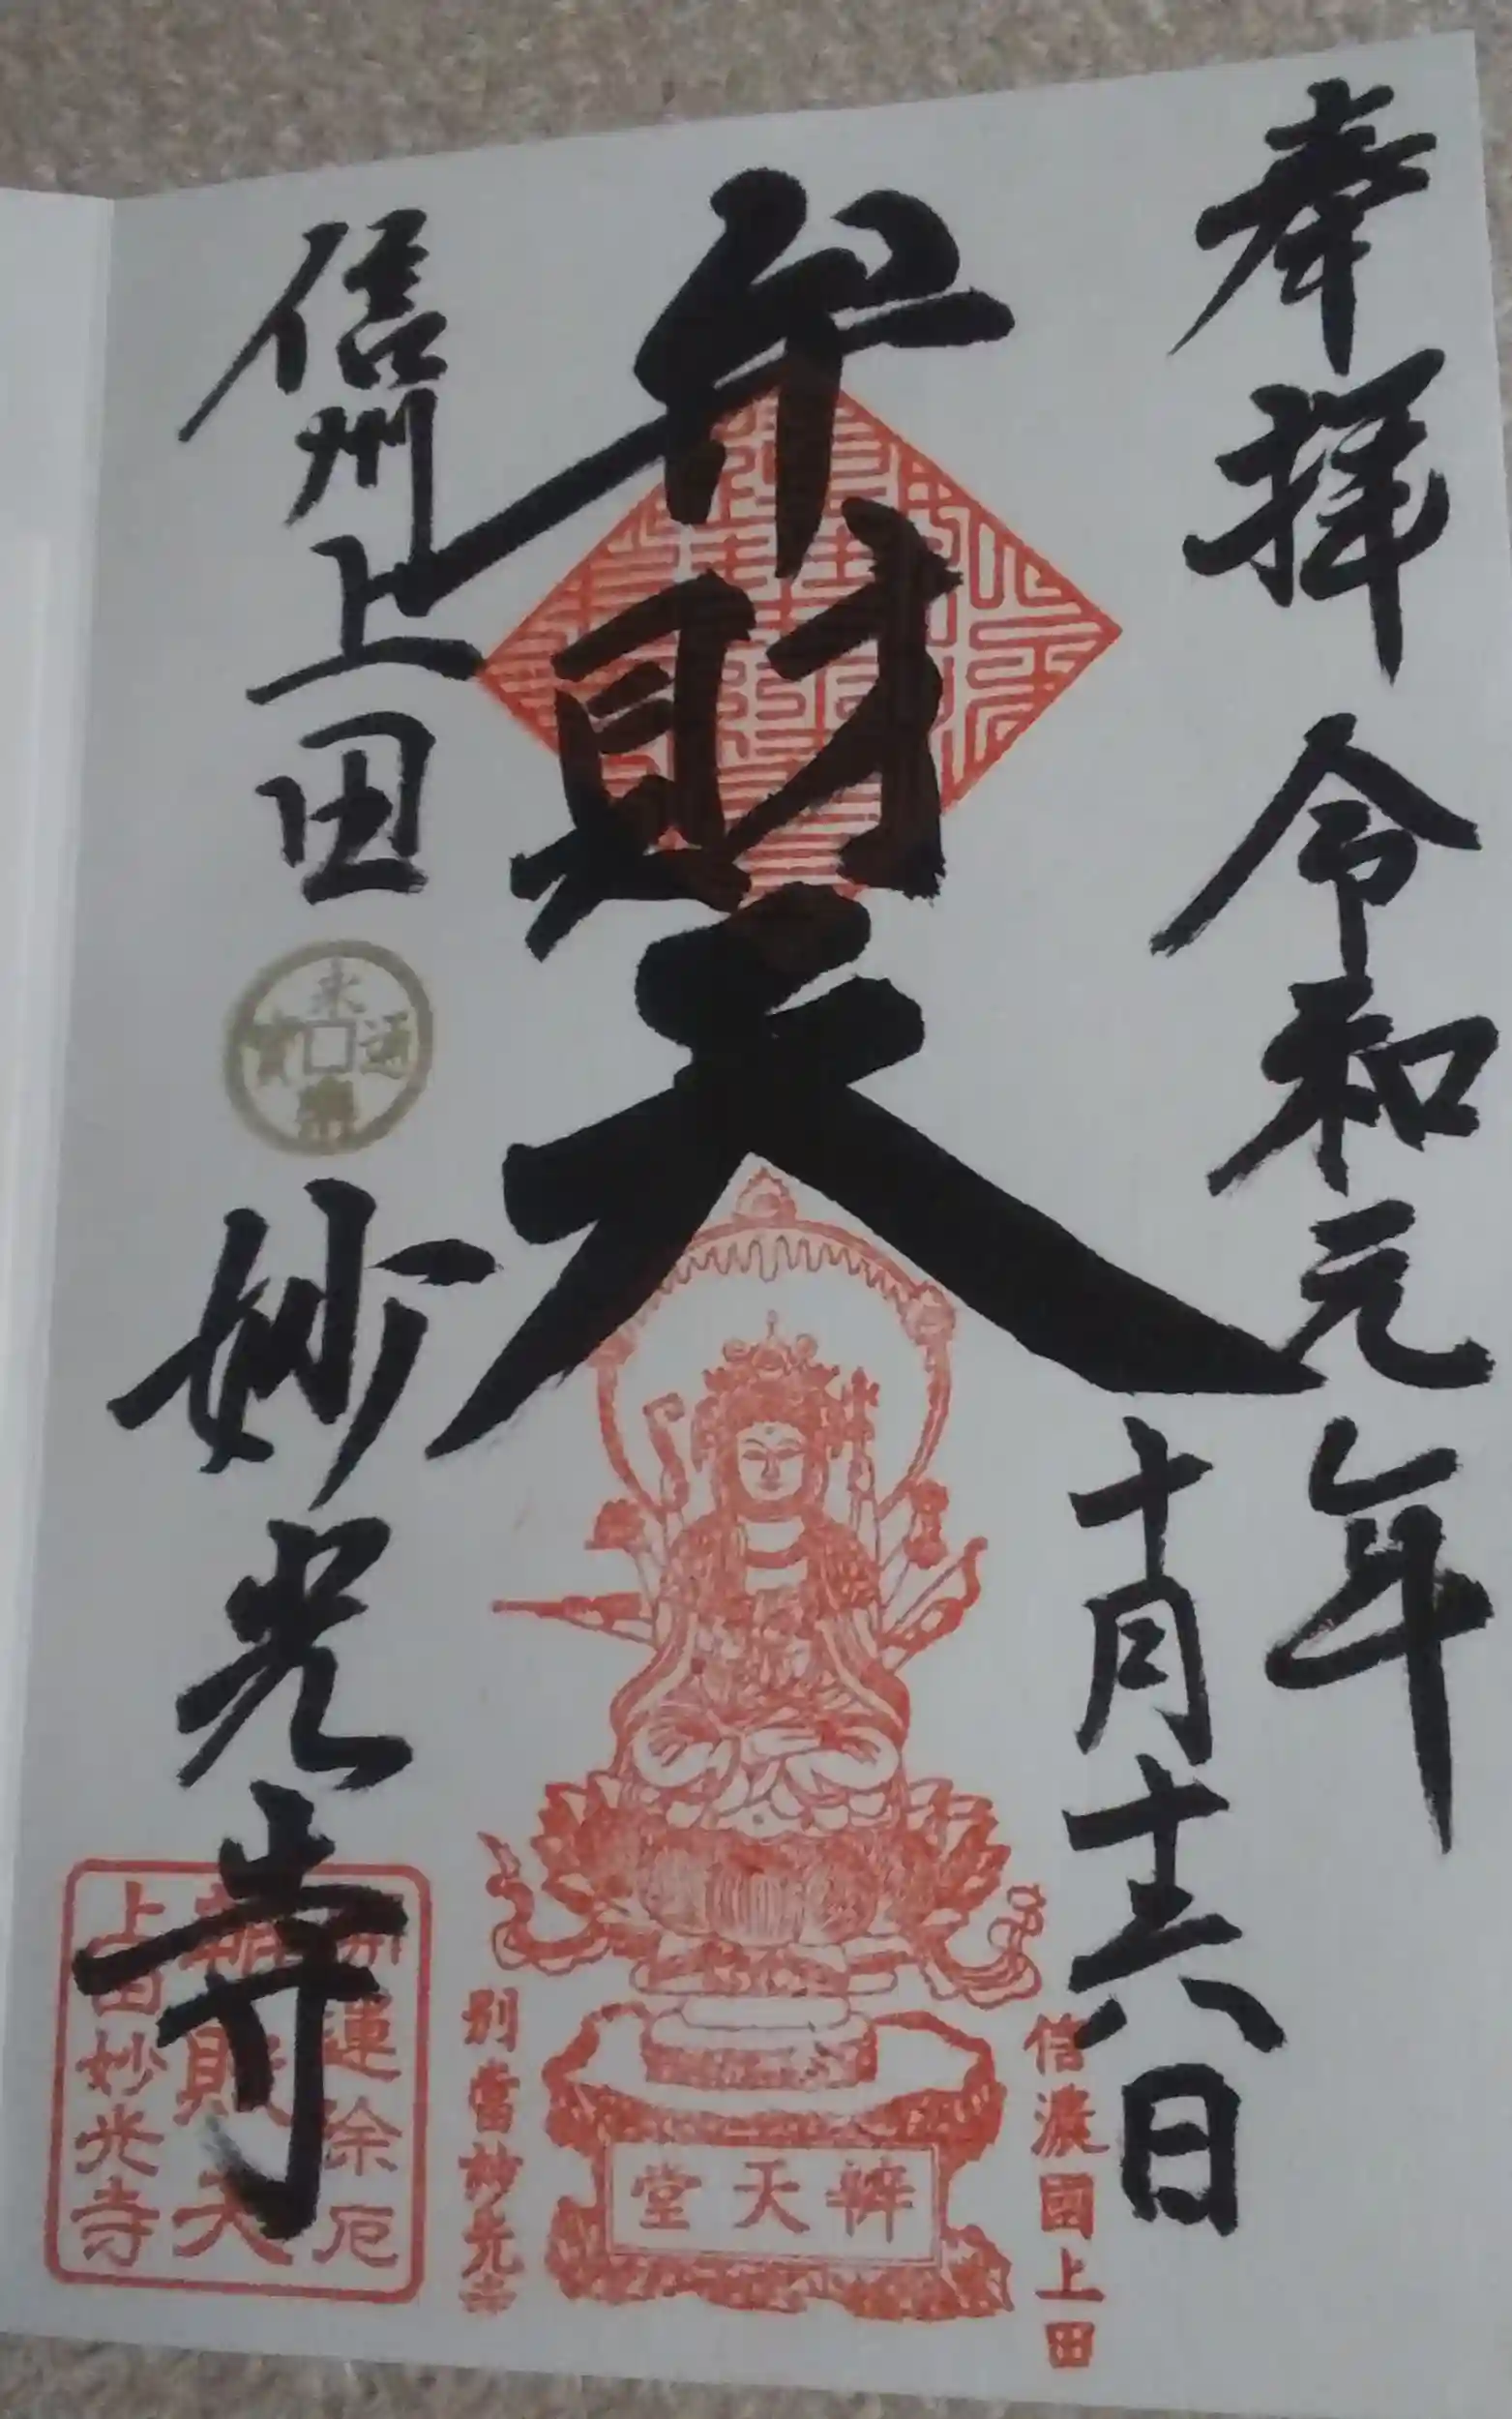 奉拝 令和元年
十月十六日
弁財天
信州上田
妙光寺
永楽通寳
信濃國上田
辨天堂
別當妙光寺
運除厄
財天
上田妙光寺